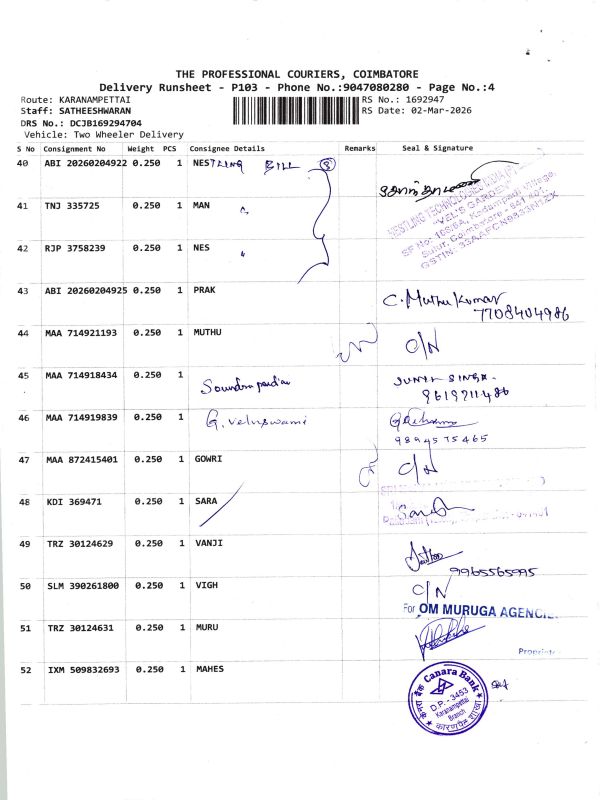 THE PROFESSIONAL COURIERS, COIMBATORE
Delivery Runsheet - P103 - Phone No.:9047080280 - Page No.:4
Route: KARANAMPETTAI RS No.: 1692947
Staff: SATHEESHWARAN RS Date: 02-Mar-2026
DRS No.: DCJB169294704
Vehicle: Two Wheeler Delivery
S No Consignment No Weight PCS Consignee Details Remarks Seal & Signature
40 ABI 20260204922 0.250 1 NESTLING BILL 3
41 TNJ 335725 0.250 1 MAN "
NESTLING TECHNOLOGIES INDIA (P)
"VEL'S GARDEN"
SF No: 168/6A, Kadampadi Village,
Sulur, Coimbatore - 641 401.
GSTIN: 33AAFCN9833N1ZX
42 RJP 3758239 0.250 1 NES "
43 ABI 20260204925 0.250 1 PRAK C. Muthu Kumar
7708404986
44 MAA 714921193 0.250 1 MUTHU O/N
45 MAA 714918434 0.250 1 Soundra pandian SUNIL SINGH.
9619711486
46 MAA 714919839 0.250 1 G. veluswami
9894575465
47 MAA 872415401 0.250 1 GOWRI C/N
48 KDI 369471 0.250 1 SARA
49 TRZ 30124629 0.250 1 VANJI
9965565995
50 SLM 390261800 0.250 1 VIGH C/N
For OM MURUGA AGENCIE
51 TRZ 30124631 0.250 1 MURU
Proprietor
52 IXM 509832693 0.250 1 MAHES
Canara Bank
D.P.- 3453
Karanampettai
Branch